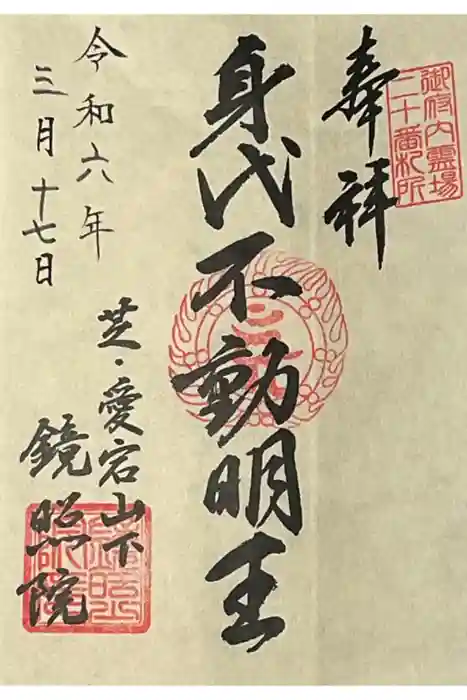 御府内霊場
二十番札所
奉拝
身代不動明王
芝・愛宕山下
鏡照院
令和六年
三月十七日